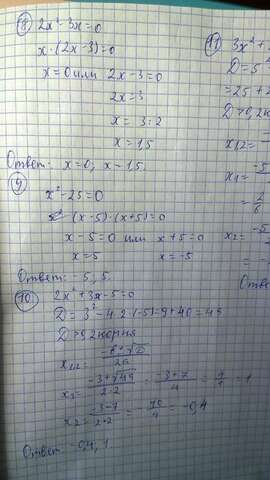 8) 2x² - 3x = 0
x · (2x - 3) = 0
x = 0 или 2x - 3 = 0
2x = 3
x = 3 : 2
x = 1,5
Ответ: x = 0; x = 1,5.
9)
x² - 25 = 0
(x - 5) · (x + 5) = 0
x - 5 = 0 или x + 5 = 0
x = 5 x = -5
Ответ: -5; 5.
10) 2x² + 3x - 5 = 0
D = 3² - 4 · 2 · (-5) = 9 + 40 = 49
D > 0, 2 корня
x₁,₂ = -b ± √D / 2a
x₁ = -3 + √49 / 2·2 = -3 + 7 / 4 = 1
x₂ = -3 - 7 / 2·2 = -10 / 4 = -0,4
Ответ: -0,4; 1
11) 3x² +
D = 5²
= 25 + 2
D > 0, 2 к
x₁,₂ =
x₁ = -5
= 2 / 6
x₂ = -5
= -
Отве